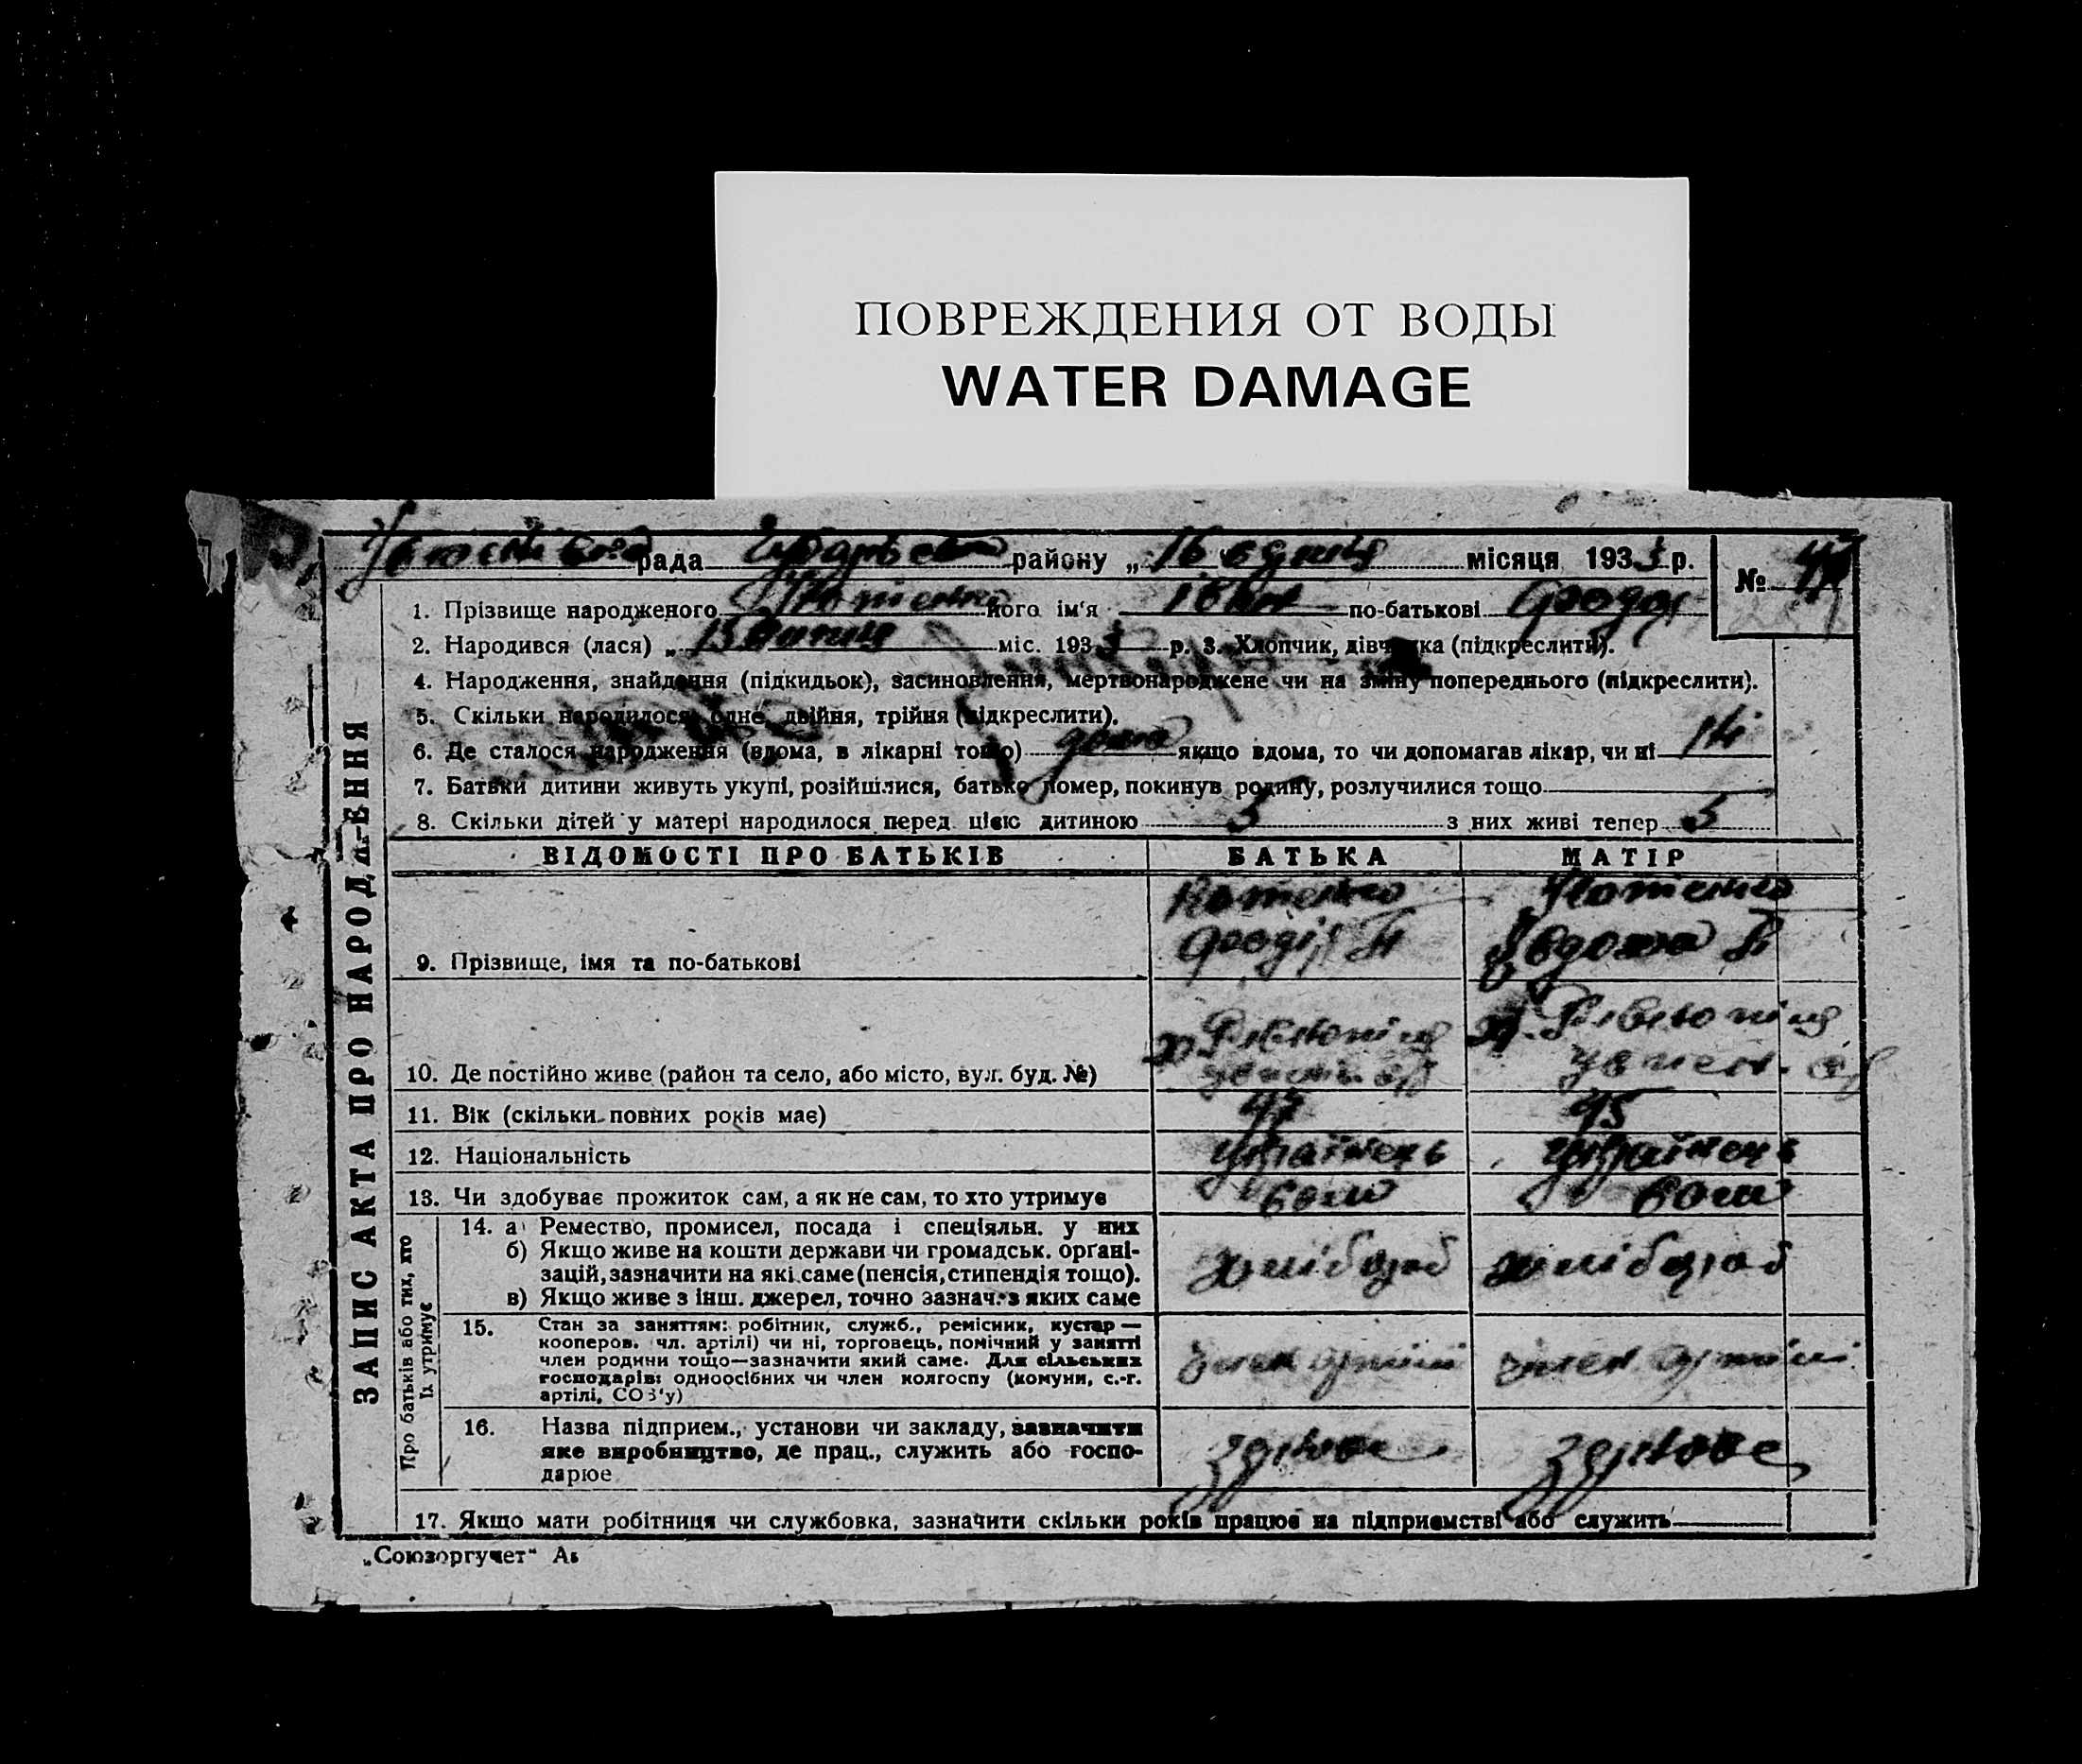 ПОВРЕЖДЕНИЯ ОТ ВОДЫ
WATER DAMAGE
рада району „16 місяця 1933 р.
№
ЗАПИС АКТА ПРО НАРОДЖЕННЯ
1. Прізвище народженого Котенко його ім'я Іван по-батькові
2. Народився (лася) „ 15 міс. 193 р. 3. Хлопчик, дівчинка (підкреслити).
4. Народження, знайдення (підкидьок), засиновлення, мертвонароджене чи на зміну попереднього (підкреслити).
5. Скільки народилося: одне, двійня, трійня (підкреслити).
6. Де сталося народження (вдома, в лікарні тощо) дома якщо вдома, то чи допомагав лікар, чи ні ні
7. Батьки дитини живуть укупі, розійшлися, батько помер, покинув родину, розлучилися тощо
8. Скільки дітей у матері народилося перед цією дитиною 5 з них живі тепер 5
ВІДОМОСТІ ПРО БАТЬКІВ БАТЬКА МАТІР
Котенко Котенко
9. Прізвище, імя та по-батькові Явдоха
10. Де постійно живе (район та село, або місто, вул. буд. №)
11. Вік (скільки повних років має) 47 45
12. Національність українець українець
13. Чи здобуває прожиток сам, а як не сам, то хто утримує
Про батьків або тих, хто їх утримує
14. а) Ремество, промисел, посада і спеціяльн. у них
б) Якщо живе на кошти держави чи громадськ. органі-
зацій, зазначити на які саме (пенсія, стипендія тощо).
в) Якщо живе з інш. джерел, точно зазнач. з яких саме
хлібороб хлібороб
15. Стан за заняттям: робітник, служб., ремісник, кустар —
кооперов. чл. артілі) чи ні, торговець, помічний у занятті
член родини тощо—зазначити який саме. Для сільських
господарів: одноосібних чи член колгоспу (комуни, с.-г.
артілі, СОЗ'у)
член артілі член артілі
16. Назва підприєм., установи чи закладу, зазначити
яке виробництво, де прац., служить або госпо-
дарює
17. Якщо мати робітниця чи службовка, зазначити скільки років працює на підприємстві або служить
„Союзоргучет"